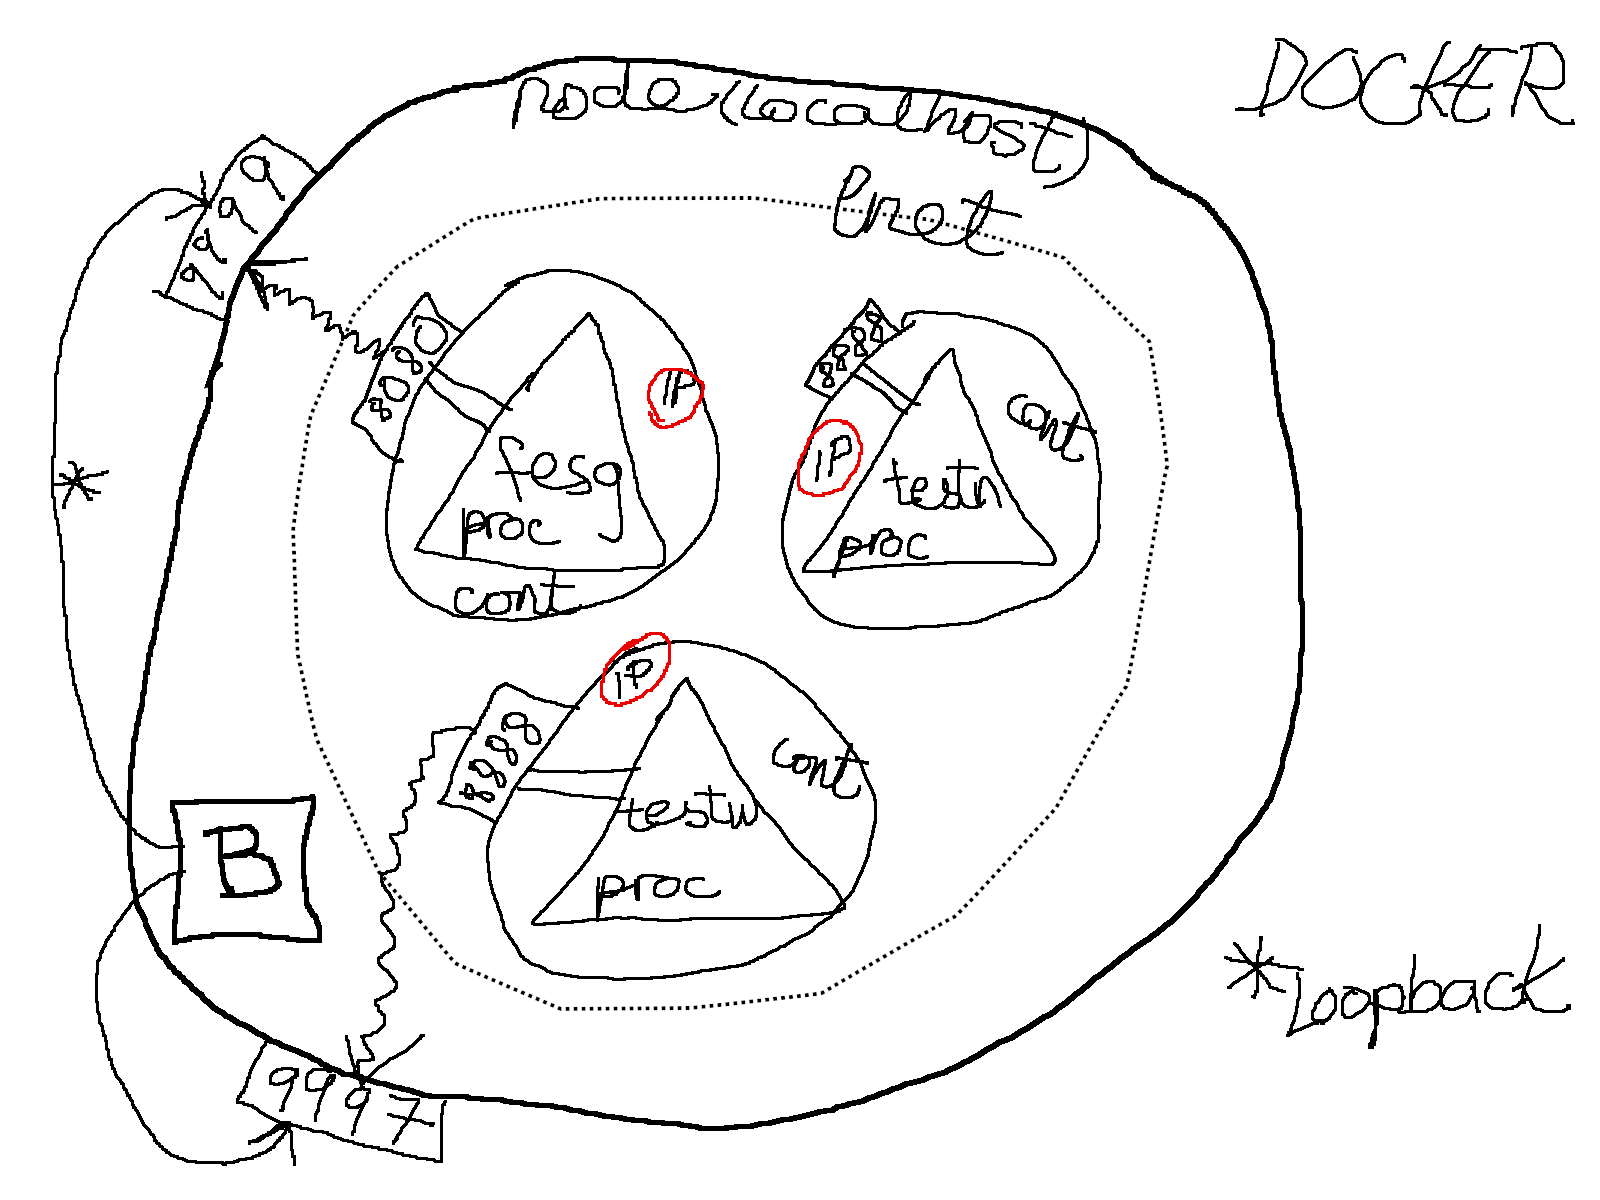 DOCKER
node (localhost)
9999
bnet
8080
IP
fesg
proc
cont
8888
IP
cont
testn
proc
*
IP
8888
cont
testw
proc
B
9997
*Loopback